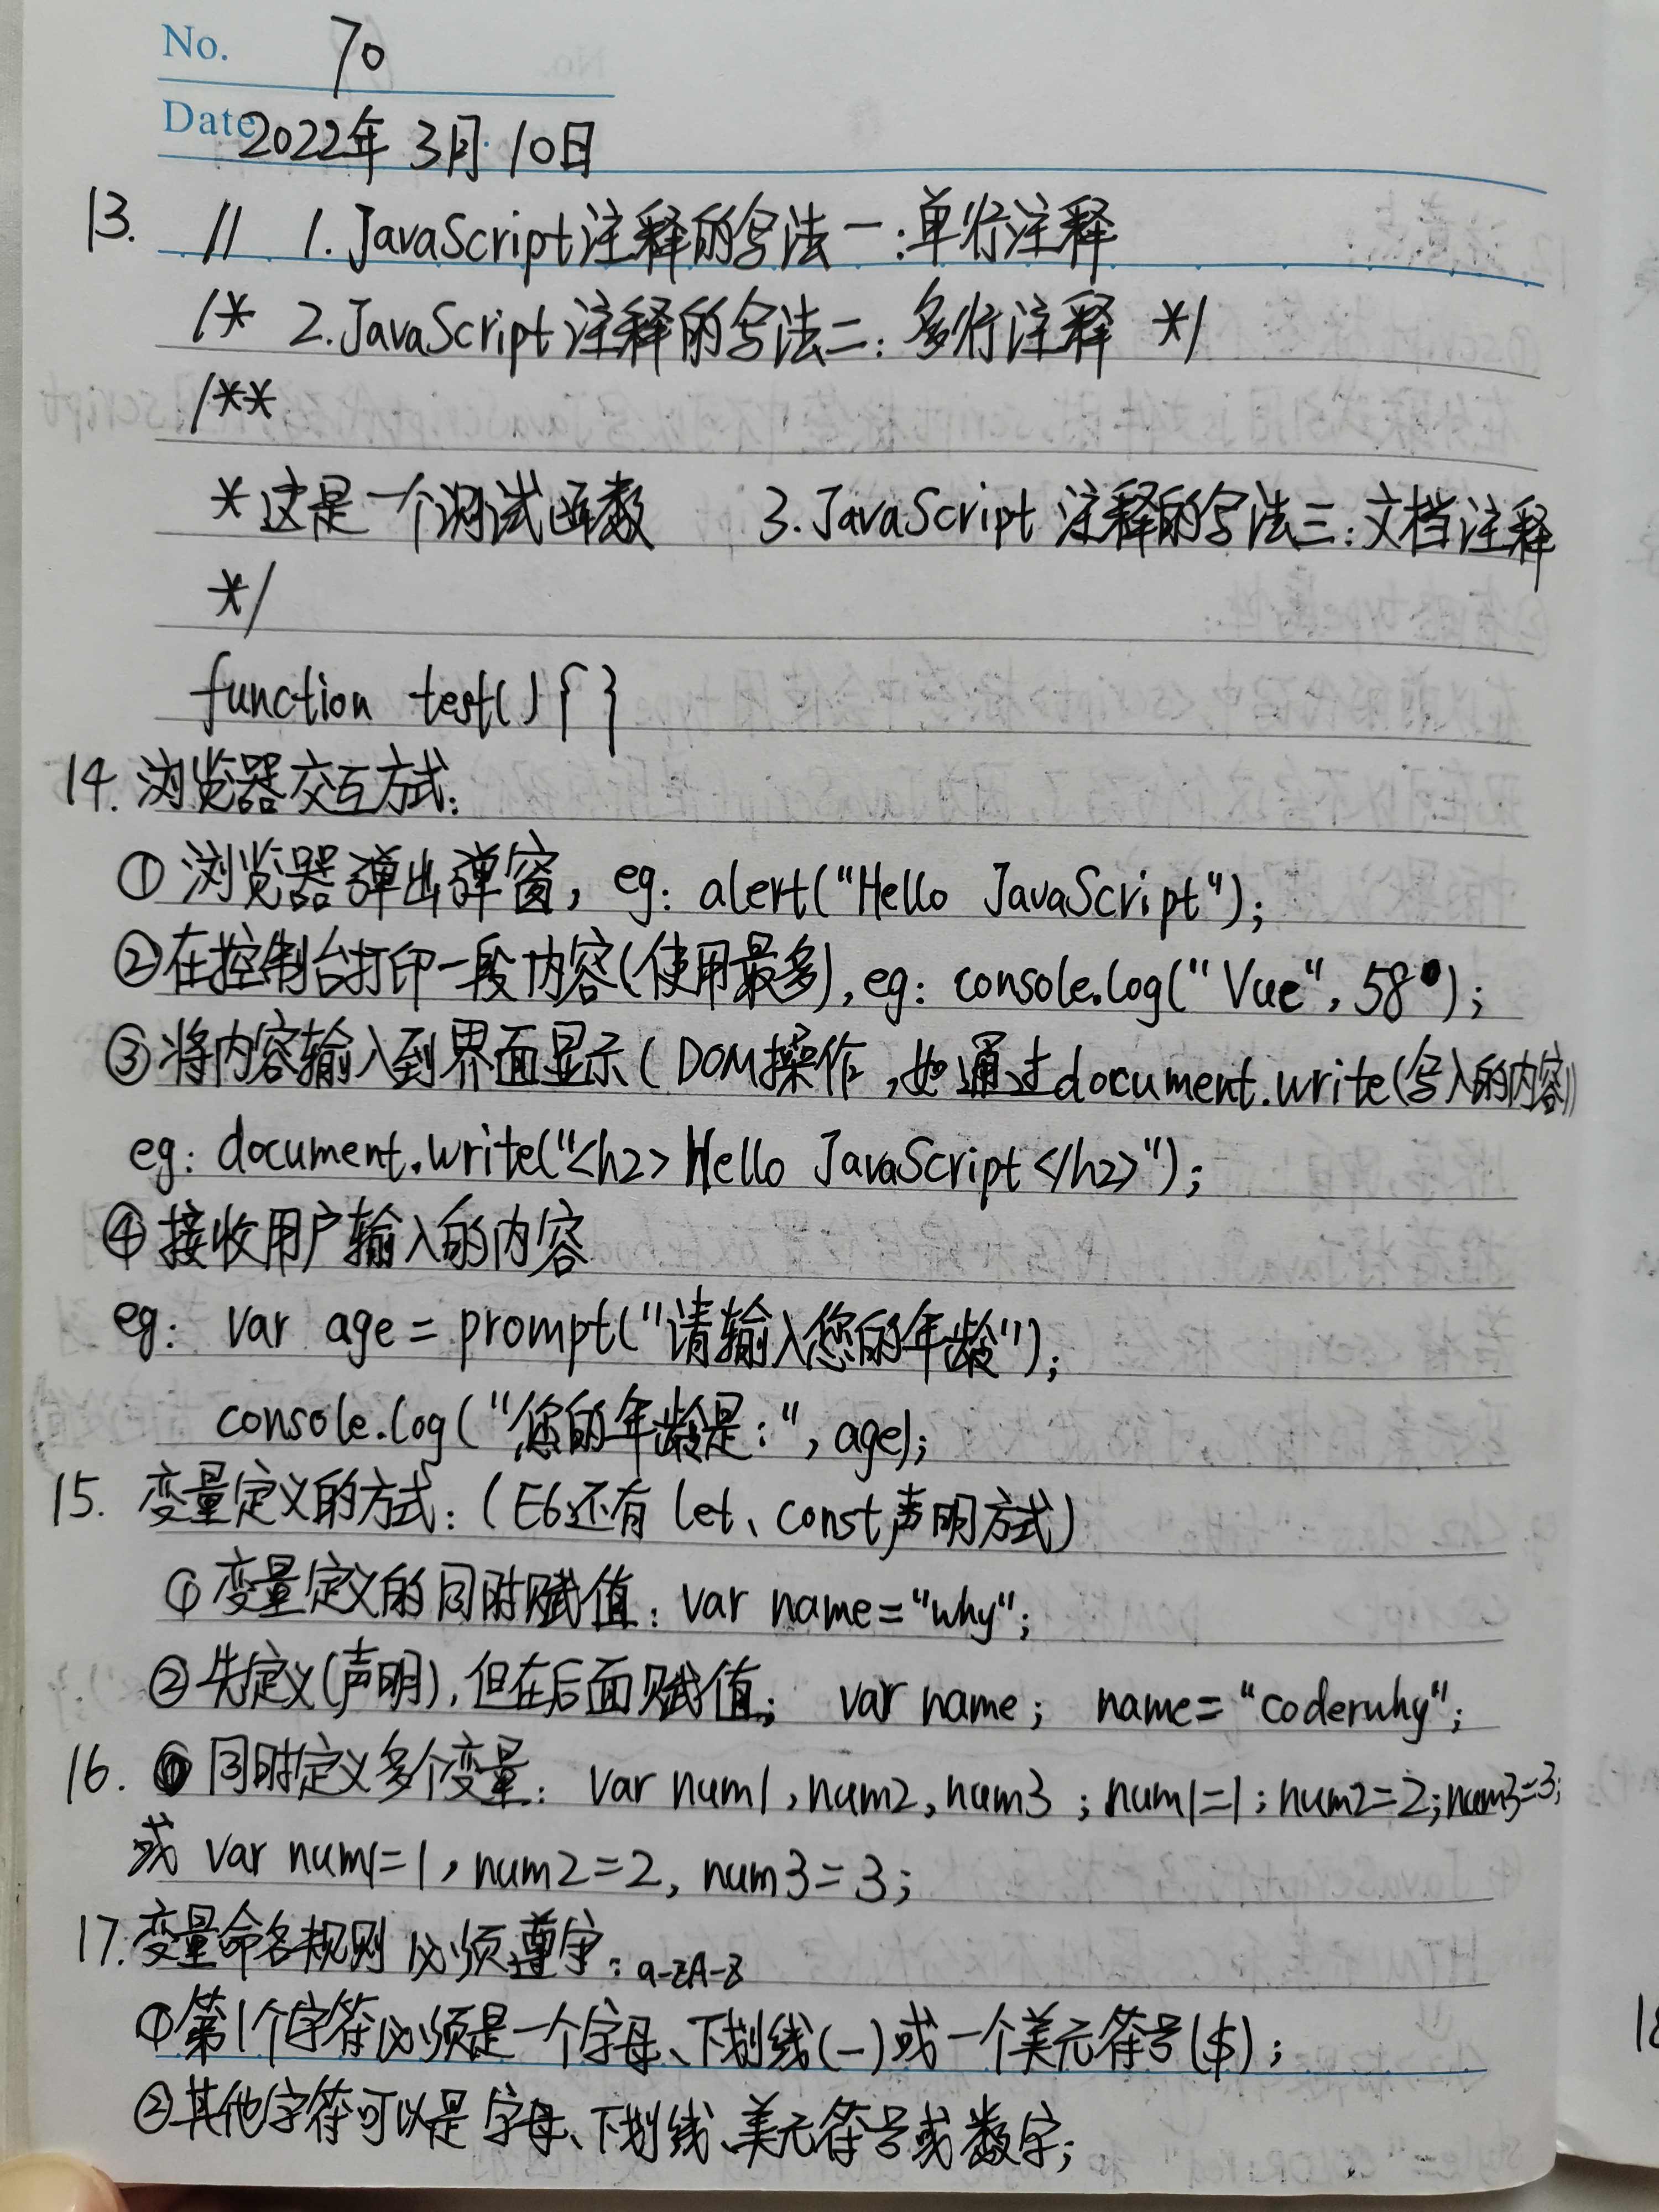 No. 70
Date 2022年 3月 10日
13. // 1. JavaScript注释的写法一:单行注释
/* 2.JavaScript注释的写法二: 多行注释 */
/**
*这是一个测试函数 3.JavaScript 注释的写法三:文档注释
*/
function test(){ }
14. 浏览器交互方式:
① 浏览器弹出弹窗, eg: alert("Hello JavaScript");
②在控制台打印一段内容(使用最多),eg: console.log("Vue", 58);
③将内容输入到界面显示(DOM操作,如通过document.write(写入的内容))
eg: document.write("<h2>Hello JavaScript</h2>");
④接收用户输入的内容
eg: var age = prompt("请输入您的年龄");
console.log("您的年龄是:", age);
15. 变量定义的方式:(E6还有 let、const声明方式)
①变量定义的同时赋值: var name="why";
②先定义(声明),但在后面赋值; var name; name="coderwhy";
16. 同时定义多个变量: var num1, num2, num3 ; num1=1; num2=2; num3=3;
或 var num1=1, num2=2, num3=3;
17.变量命名规则 必须遵守: a-zA-Z
①第1个字符必须是一个字母、下划线(-)或一个美元符号($);
②其他字符可以是字母、下划线、美元符号或数字;